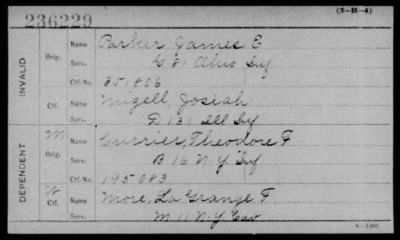 236229
(3-H-4)
INVALID
Orig.
Name Parker, James E
Serv. G 21 Ohio Inf
Ctf. No. 351,806
Ctf.
Name Mizell, Josiah
Serv. D 131 Ill Inf
DEPENDENT
M
Orig.
Name Currier, Theodore F
Serv. B 16 N.Y. Inf
Ctf. No. 195083
W
Ctf.
Name More, La Grange F
Serv. M 11 N.Y. Cav